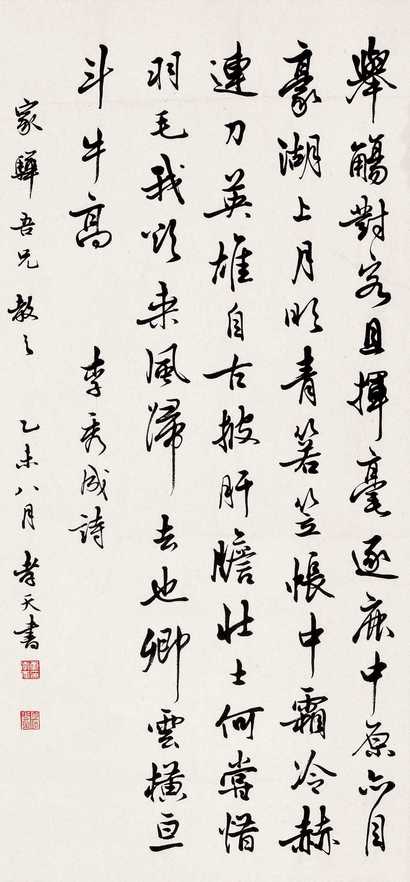 舉觴對客且揮毫逐鹿中原亦自
豪湖上月明青箬笠帳中霜冷赫
連刀英雄自古披肝膽壯士何嘗惜
羽毛我欲乘風歸去也卿雲橫亘
斗牛高
李秀成詩
家驊吾兄教之
乙未八月孝天書